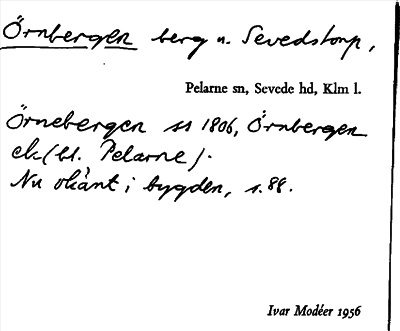 Örnbergen berg n. Sevedstorp,
Pelarne sn, Sevede hd, Klm l.
Örnebergen ss 1806, Örnbergen
ek (bl. Pelarne).
Nu okänt i bygden, s. 88.
Ivar Modéer 1956